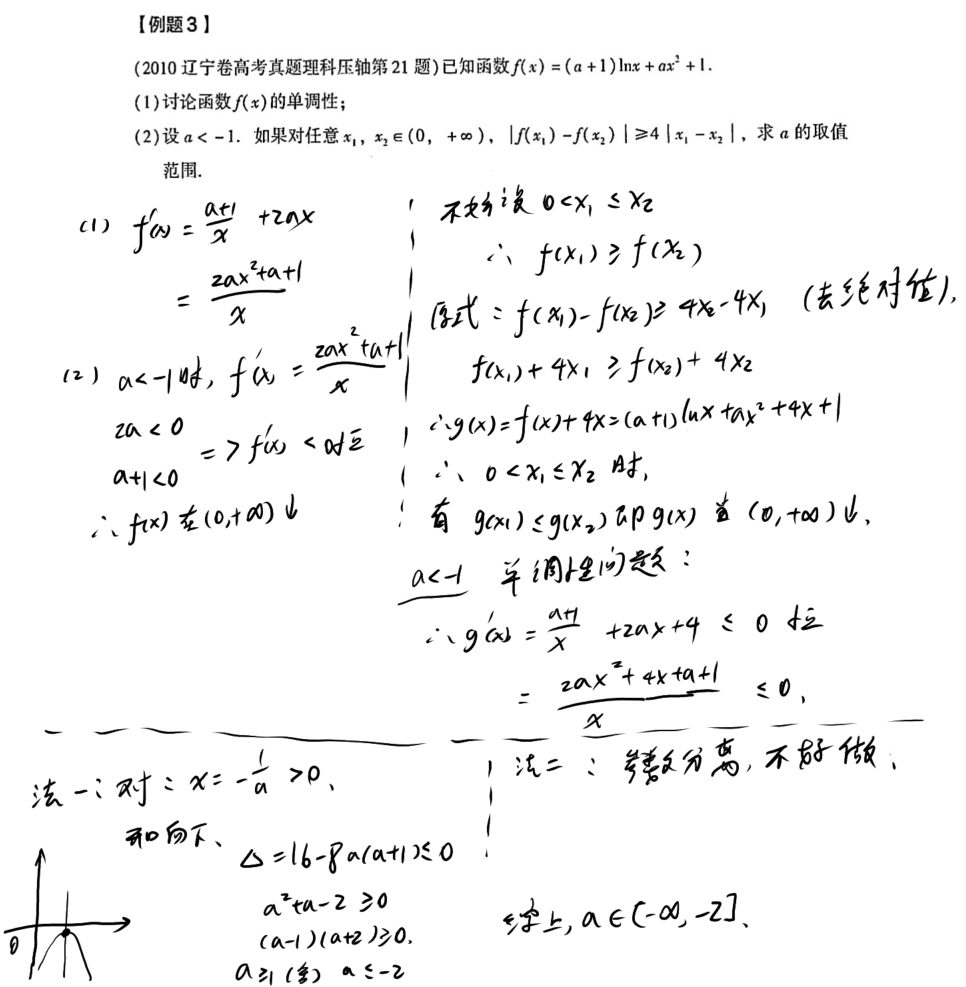 【例题3】
(2010 辽宁卷高考真题理科压轴第 21 题)已知函数f(x) = (a+1)lnx + ax² + 1.
(1)讨论函数f(x)的单调性;
(2)设 a < -1. 如果对任意 x₁, x₂∈(0, +∞), |f(x₁) - f(x₂)|≥4|x₁ - x₂|, 求 a 的取值
范围.
(1) f'(x) = (a+1)/x + 2ax
= (2ax²+a+1)/x
(2) a<-1时, f'(x) = (2ax²+a+1)/x
2a<0
a+1<0
=> f'(x) <0恒立
∴ f(x) 在(0,+∞)↓
不妨设 0<x₁≤x₂
∴ f(x₁)≥f(x₂)
原式: f(x₁)-f(x₂)≥4x₂-4x₁ (去绝对值),
f(x₁)+4x₁≥f(x₂)+4x₂
∴g(x)=f(x)+4x=(a+1)lnx+ax²+4x+1
∴ 0<x₁≤x₂ 时,
有 g(x₁)≤g(x₂)即g(x) 在 (0,+∞)↓.
a<-1 单调性问题:
∴g'(x) = (a+1)/x +2ax+4 ≤ 0 恒立
= (2ax²+4x+a+1)/x ≤0,
法一: 对: x=-1/a >0,
开口向下、
△=16-8a(a+1)≤0
a²+a-2≥0
(a-1)(a+2)≥0.
a≥1 (舍) a≤-2
0
法二: 参数分离, 不好做,
综上, a∈[-∞,-2]、